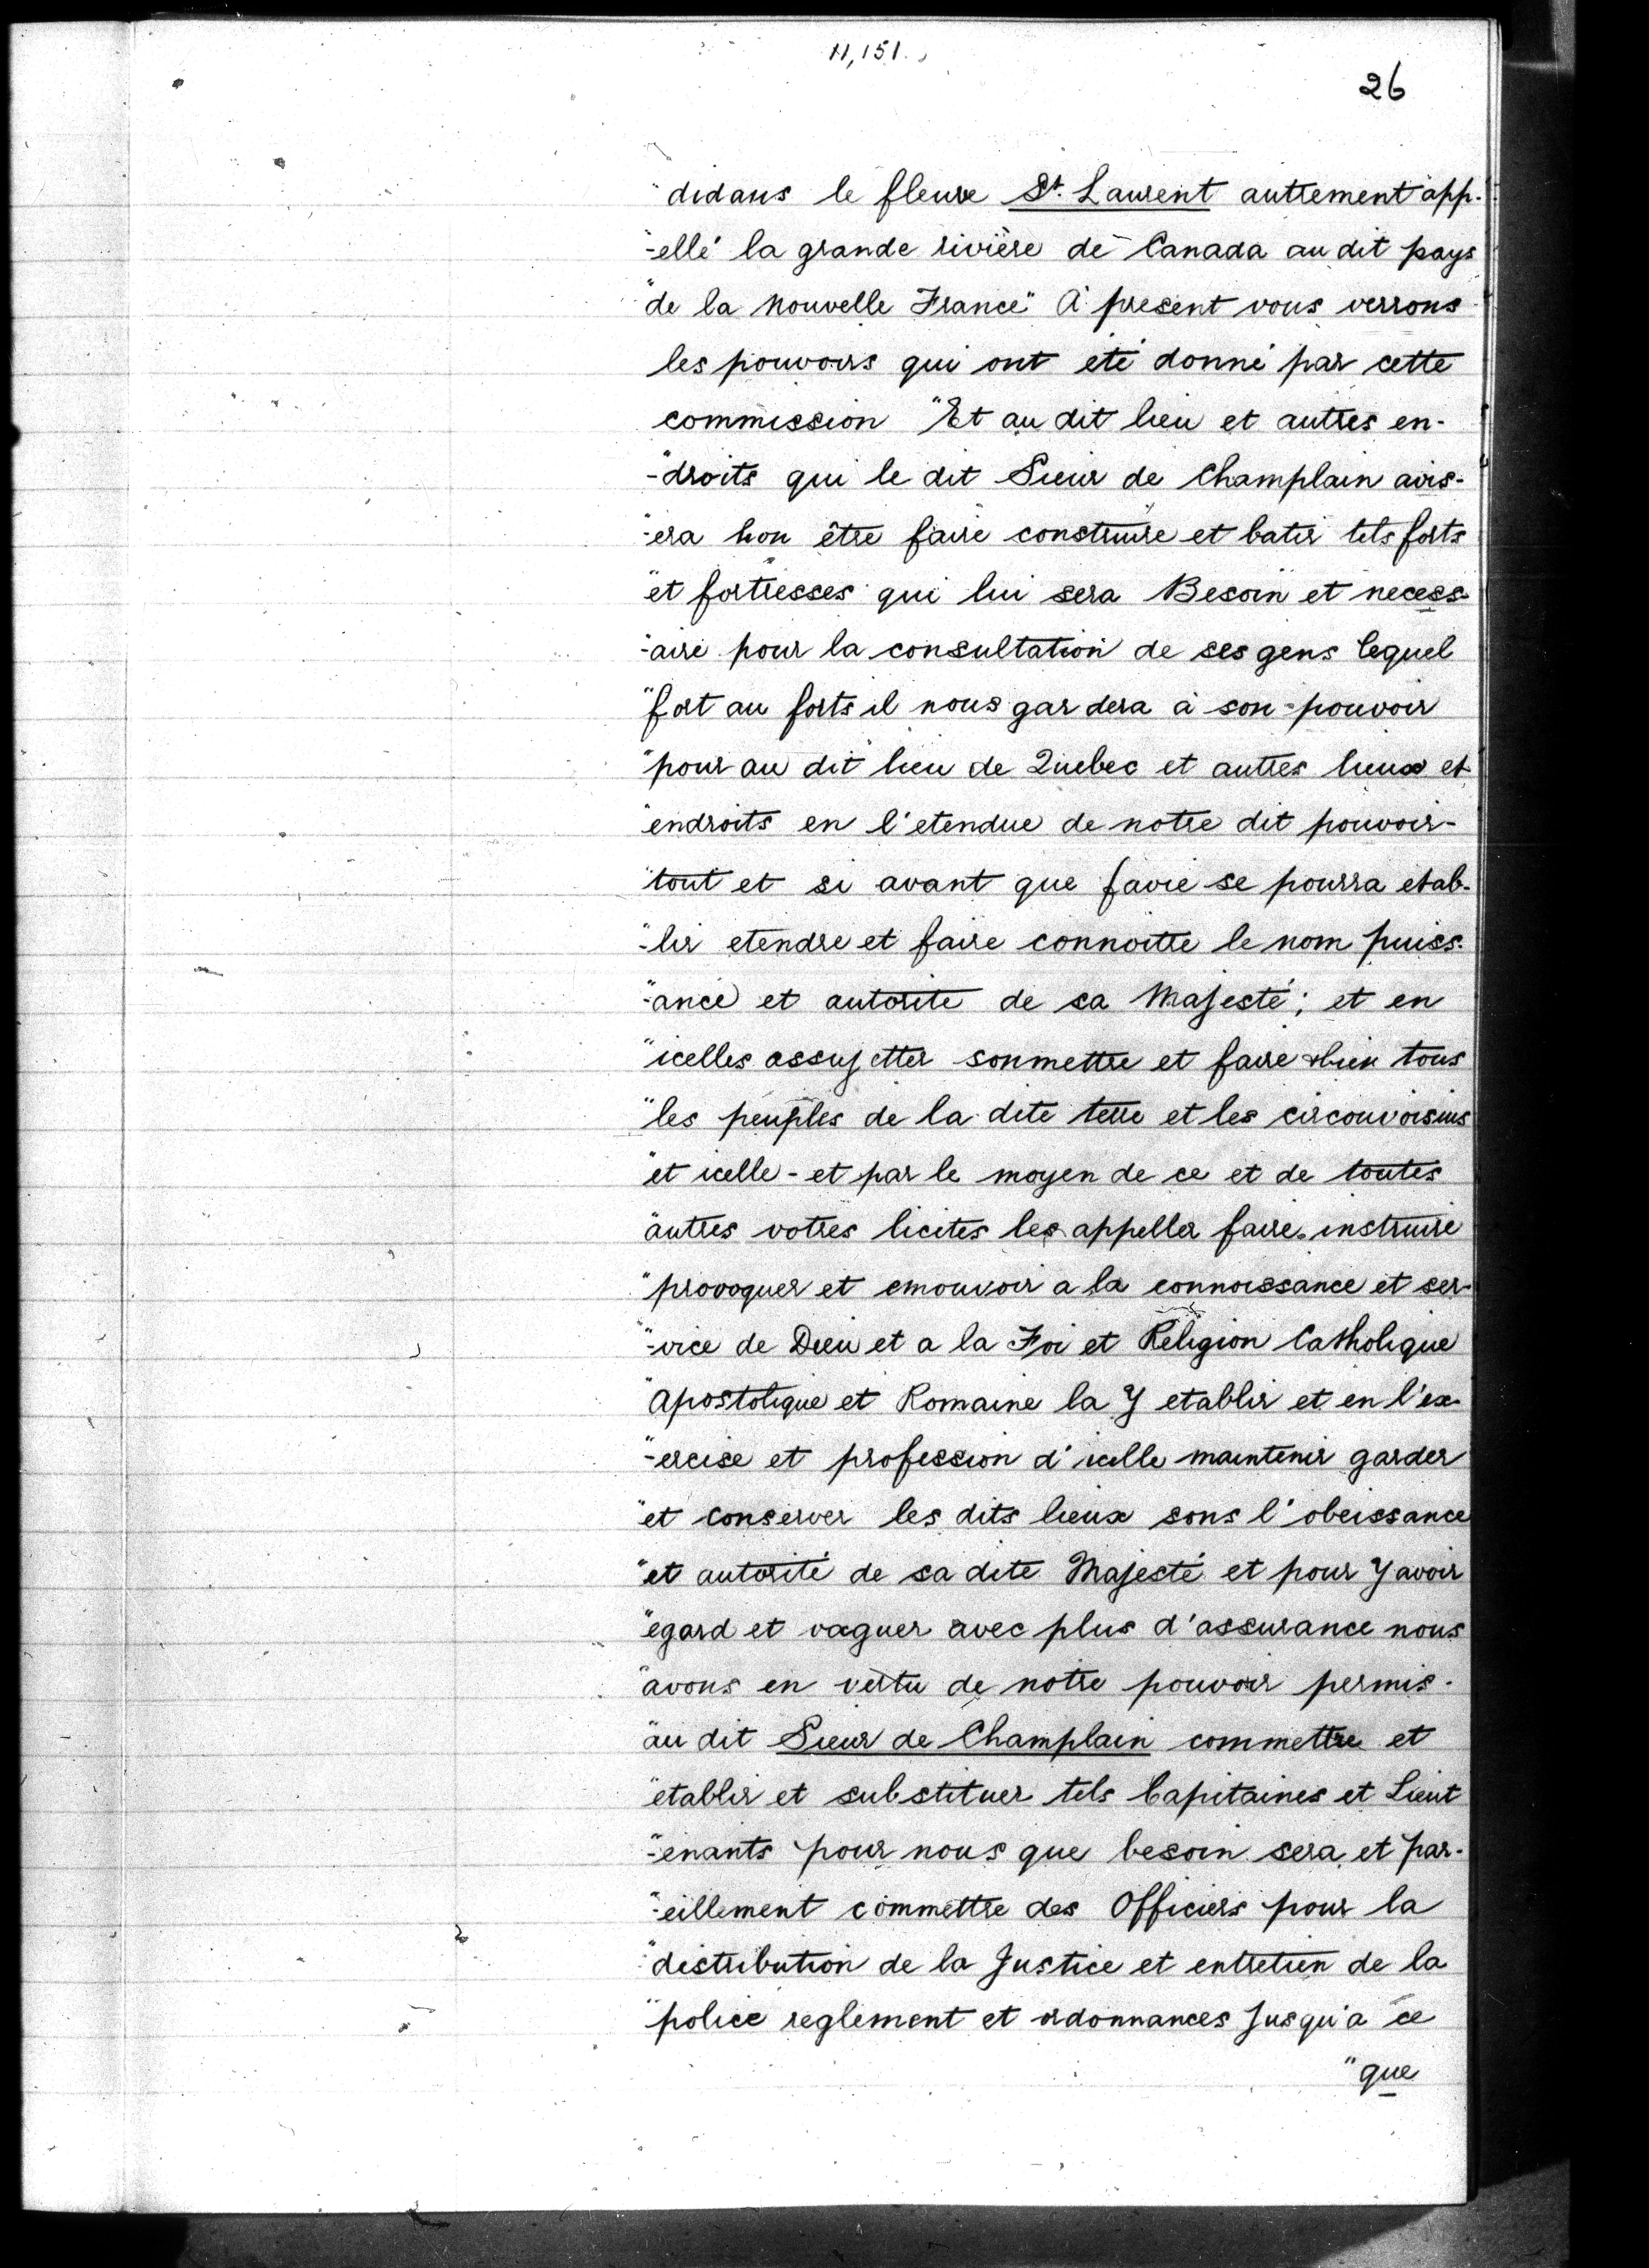 11,151.
26
"didans le fleuve St. Laurent autrement app-
"-ellé la grande rivière de Canada au dit pays
"de la Nouvelle France" A present vous verrons
les pouvoirs qui ont été donné par cette
commission "Et au dit lieu et autres en-
"-droits qui le dit Sieur de Champlain avis-
"-era bon être faire construire et batir tels forts
"et fortresses qui lui sera Besoin et necess-
"-aire pour la consultation de ses gens lequel
"fort au forts il nous gardera à son pouvoir
"pour au dit lieu de Quebec et autres lieux et
"endroits en l'etendue de notre dit pouvoir-
"tout et si avant que favie se pourra etab-
"-lir etendre et faire connoitre le nom puiss-
"-ance et autorite de sa Majesté; et en
"icelles assujetter sonmettre et faire obien tous
"les peuples de la dite terre et les circonvoisins
"et icelle - et par le moyen de ce et de toutes
"autres votres licites les appeller faire instruire
"provoquer et emouvoir a la connoissance et ser-
"-vice de Dieu et a la Foi et Religion Catholique
"Apostolique et Romaine la Y etablir et en l'ex-
"-ercise et profession d'icelle maintenir garder
"et conserver les dits lieux sons l'obeissance
"et autorité de sa dite Majesté et pour Y avoir
"egard et vaquer avec plus d'assurance nous
"avons en vertu de notre pouvoir permis-
"au dit Sieur de Champlain commettre et
"etablir et substituer tels Capitaines et Lieut
"-enants pour nous que besoin sera et par-
"-eillement commettre des Officiers pour la
"distribution de la Justice et entretien de la
"police reglement et ordonnances Jusqu'a ce
"que